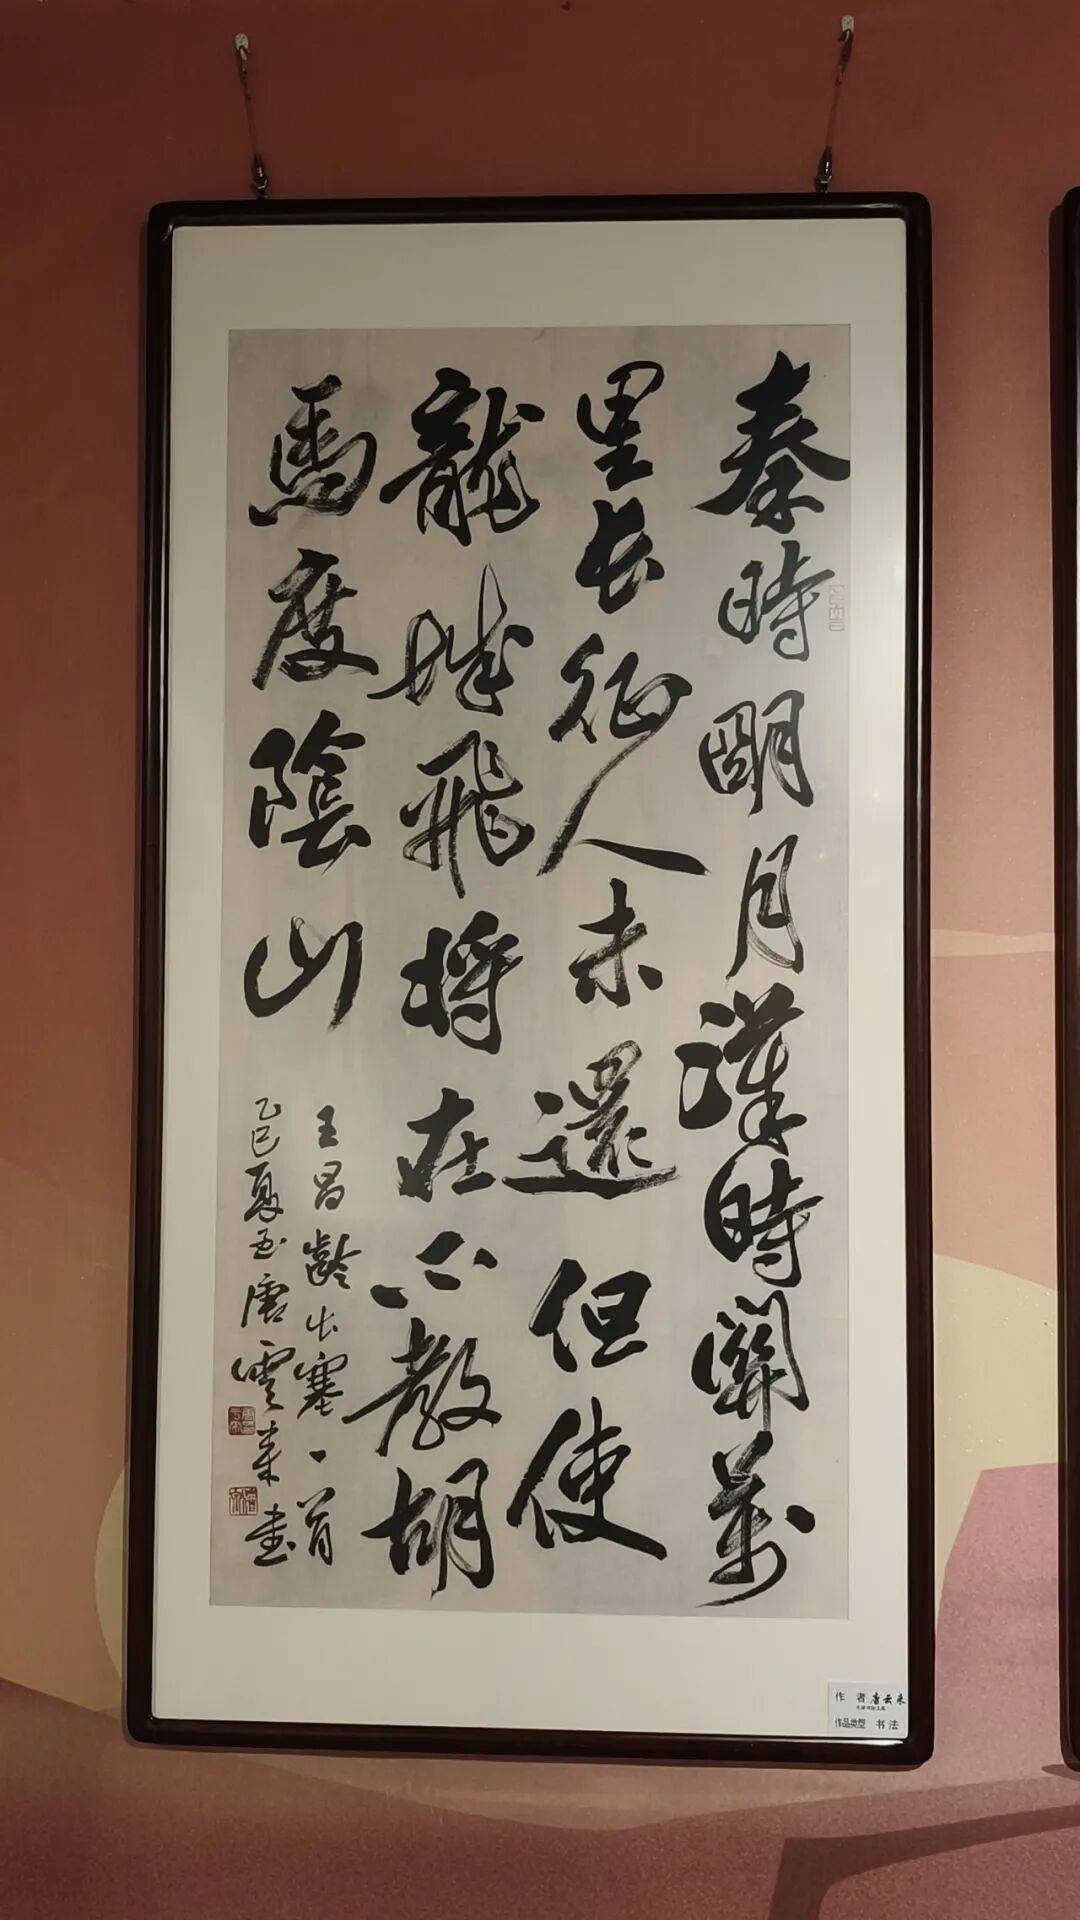 秦時明月漢時關萬
里長征人未還但使
龍城飛將在不教胡
馬度陰山
王昌齡出塞一首
乙巳夏至唐雲來書
作者 唐云来
作品类型 书法